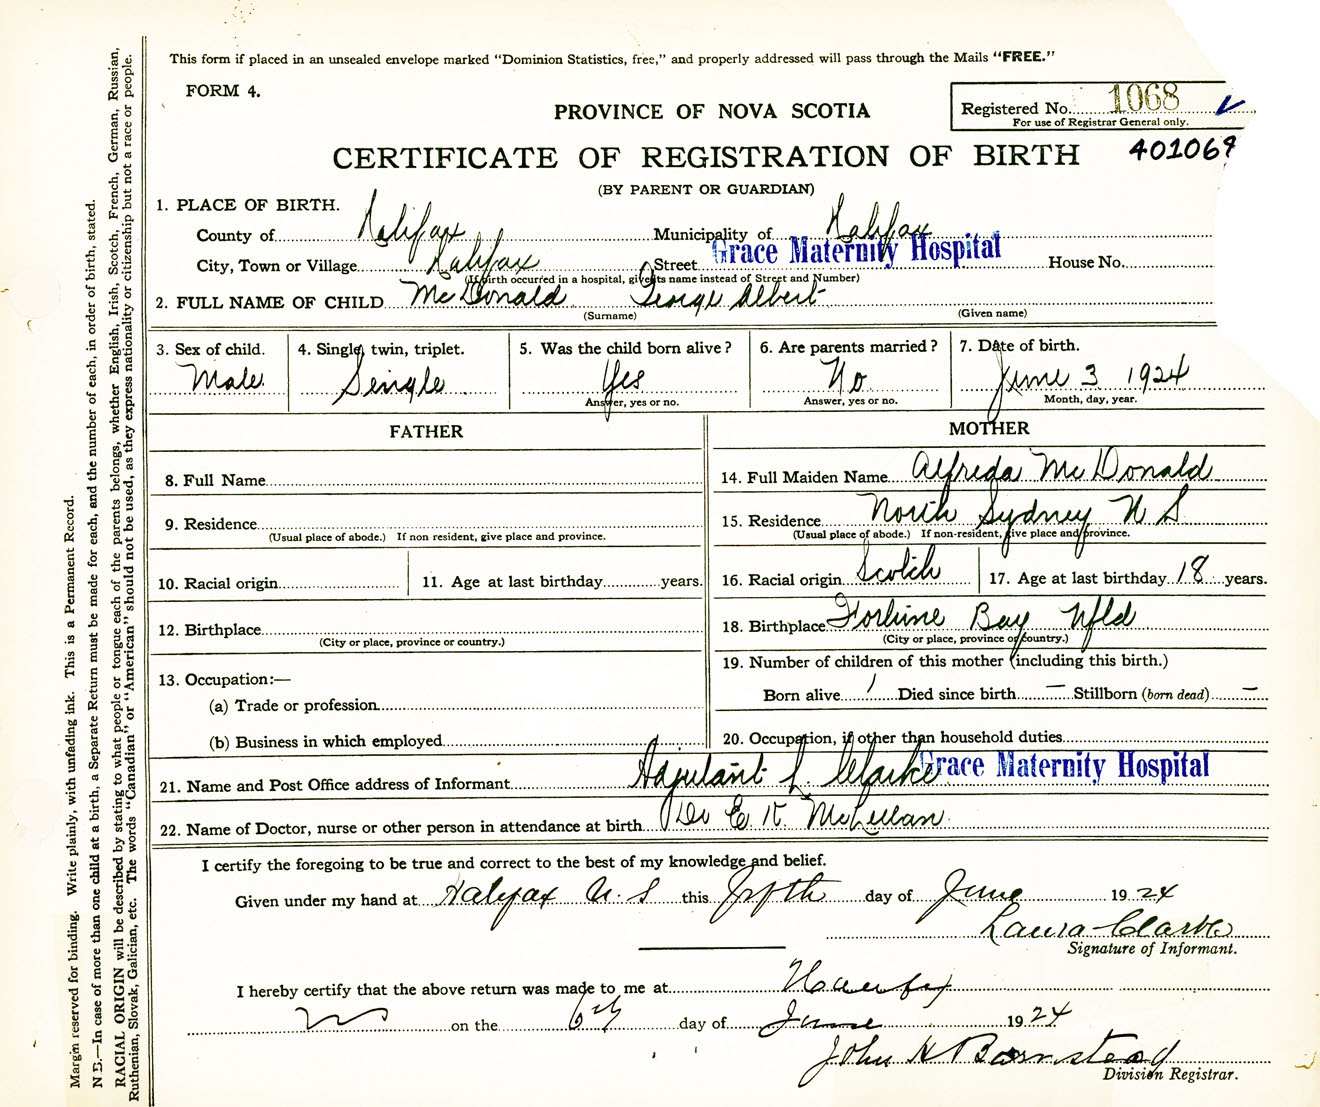 This form if placed in an unsealed envelope marked "Dominion Statistics, free," and properly addressed will pass through the Mails "FREE."
FORM 4.
PROVINCE OF NOVA SCOTIA
Registered No. 1068
For use of Registrar General only.
CERTIFICATE OF REGISTRATION OF BIRTH
401069
(BY PARENT OR GUARDIAN)
1. PLACE OF BIRTH.
County of Halifax Municipality of Halifax
City, Town or Village Halifax Street Grace Maternity Hospital House No.
(If birth occurred in a hospital, give its name instead of Street and Number)
2. FULL NAME OF CHILD McDonald George Albert
(Surname) (Given name)
3. Sex of child. Male
4. Single, twin, triplet. Single
5. Was the child born alive? Yes
Answer, yes or no.
6. Are parents married? No
Answer, yes or no.
7. Date of birth. June 3 1924
Month, day, year.
FATHER
8. Full Name
9. Residence
(Usual place of abode.) If non resident, give place and province.
10. Racial origin
11. Age at last birthday years.
12. Birthplace
(City or place, province or country.)
13. Occupation:—
(a) Trade or profession
(b) Business in which employed
MOTHER
14. Full Maiden Name Alfreda McDonald
15. Residence North Sydney N S
(Usual place of abode.) If non-resident, give place and province.
16. Racial origin Scotch
17. Age at last birthday 18 years.
18. Birthplace Fortune Bay Nfld
(City or place, province or country.)
19. Number of children of this mother (including this birth.)
Born alive 1 Died since birth — Stillborn (born dead) —
20. Occupation, if other than household duties
21. Name and Post Office address of Informant Adjutant L. Clarke Grace Maternity Hospital
22. Name of Doctor, nurse or other person in attendance at birth Dr E. K. McLellan
I certify the foregoing to be true and correct to the best of my knowledge and belief.
Given under my hand at Halifax N. S this fifth day of June 1924
Laura Clarke
Signature of Informant.
I hereby certify that the above return was made to me at Halifax
NS on the 6th day of June 1924
John H Barnstead
Division Registrar.
Margin reserved for binding. Write plainly, with unfading ink. This is a Permanent Record.
N B.—In case of more than one child at a birth, a Separate Return must be made for each, and the number of each, in order of birth, stated.
RACIAL ORIGIN will be described by stating to what people or tongue each of the parents belongs, whether English, Irish, Scotch, French, German, Russian,
Ruthenian, Slovak, Galician, etc. The words "Canadian" or "American" should not be used, as they express nationality or citizenship but not a race or people.